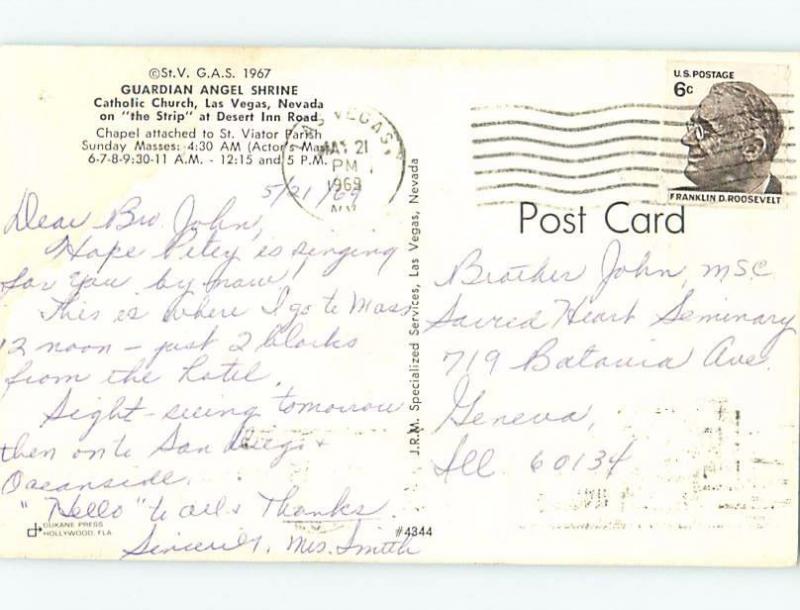 ©St.V. G.A.S. 1967
GUARDIAN ANGEL SHRINE
Catholic Church, Las Vegas, Nevada
on "the Strip" at Desert Inn Road
Chapel attached to St. Viator Parish
Sunday Masses: 4:30 AM (Actor's Mass)
6-7-8-9:30-11 A.M. - 12:15 and 5 P.M.
LAS VEGAS,
MAY 21
PM
1969
5/21/69
Dear Bro. John,
Hope Petey is singing
for you by now,
This is where I go to Mass
12 noon - just 2 blocks
from the hotel.
Sight-seeing tomorrow
then on to San Diego +
Oceanside.
"Hello" to all + Thanks.
Sincerely, Mrs. Smith
DUKANE PRESS
HOLLYWOOD, FLA
#4344
J.R.M. Specialized Services, Las Vegas, Nevada
U.S. POSTAGE
6c
FRANKLIN D. ROOSEVELT
Post Card
Brother John, MSC
Sacred Heart Seminary
719 Batavia Ave.
Geneva,
Ill 60134